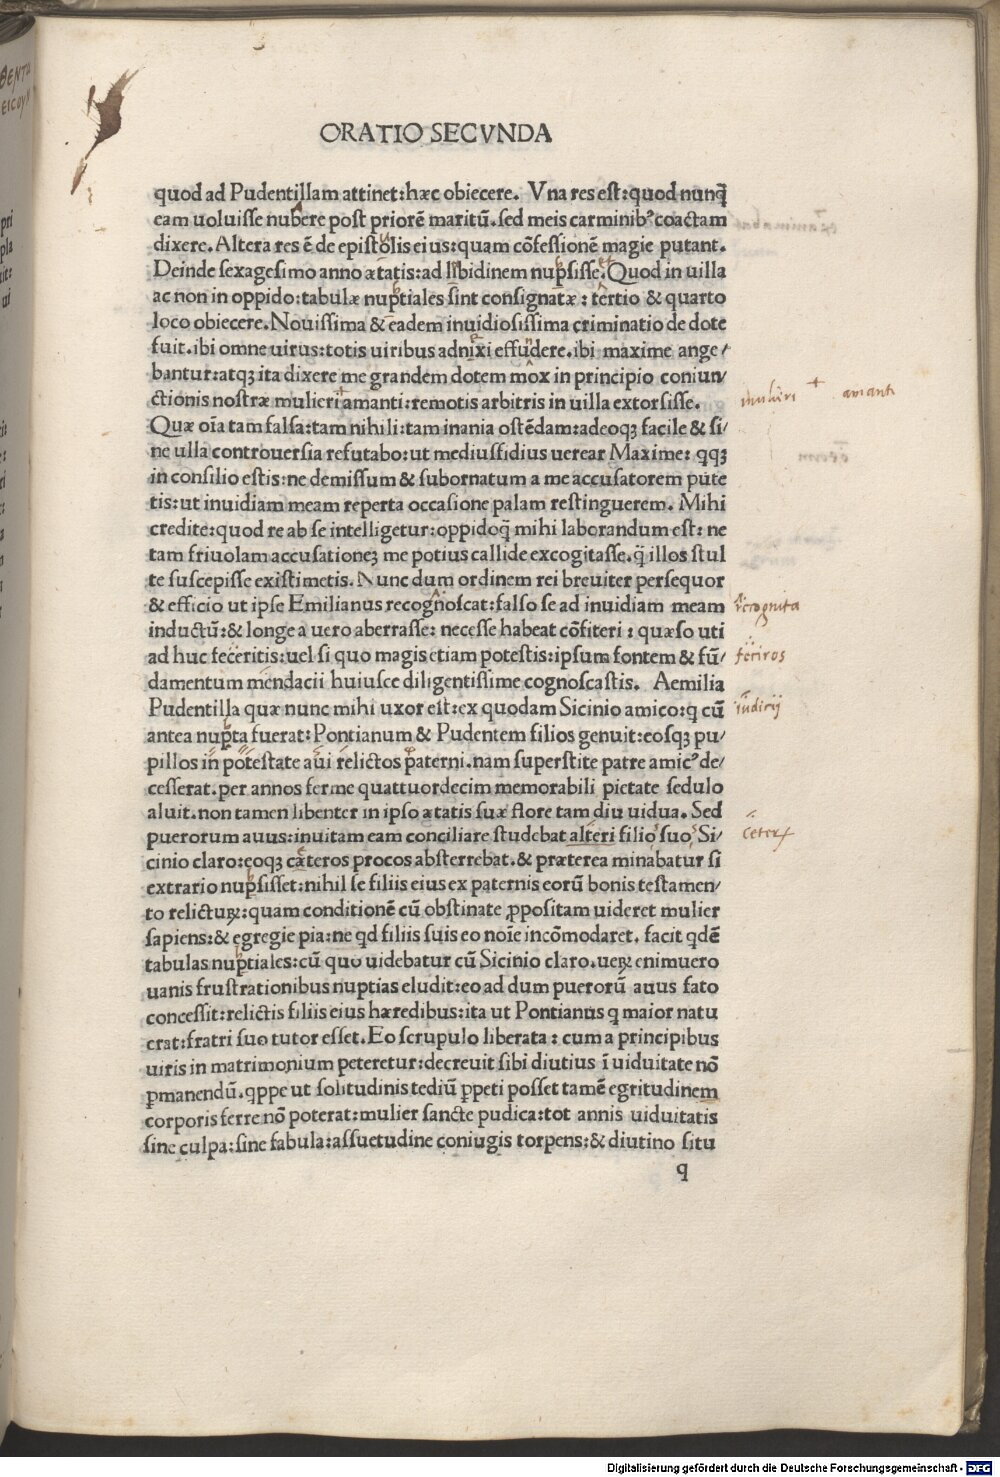 ORATIO SECVNDA
quod ad Pudentillam attinet:hæc obiecere. Vna res est:quod nunq̄
eam uoluisse nubere post priorē maritū.sed meis carminibꝰ coactam
dixere. Altera res ē de epistolis eius:quam cōfessionē magie putant.
Deinde sexagesimo anno ætatis:ad libidinem nupsisse.Quod in uilla
ac non in oppido:tabulæ nuptiales sint consignatæ: tertio & quarto
loco obiecere.Nouissima & eadem inuidiosissima criminatio de dote
fuit.ibi omne uirus:totis uiribus adnixi effudere.ibi maxime ange/
bantur:atqꝫ ita dixere me grandem dotem mox in principio coniun/
ctionis nostræ mulieri amanti:remotis arbitris in uilla extorsisse.
Quæ oīa tam falsa:tam nihili:tam inania ostēdam:adeoqꝫ facile & si/
ne ulla controuersia refutabo:ut mediusfidius uerear Maxime: qqꝫ
in consilio estis:ne demissum & subornatum a me accusatorem pute
tis:ut inuidiam meam reperta occasione palam restinguerem. Mihi
credite:quod re ab se intelligetur:oppidoq̄ mihi laborandum est: ne
tam friuolam accusationeꝫ me potius callide excogitasse.q̄ illos stul
te suscepisse existimetis. Nunc dum ordinem rei breuiter persequor
& efficio ut ipse Emilianus recognoscat:falso se ad inuidiam meam
inductū:& longe a uero aberrasse: necesse habeat cōfiteri: quæso uti
ad huc feceritis:uel si quo magis etiam potestis:ipsum fontem & fū/
damentum mendacii huiusce diligentissime cognoscastis. Aemilia
Pudentilla quæ nunc mihi uxor est:ex quodam Sicinio amico:q cū
antea nupta fuerat:Pontianum & Pudentem filios genuit:eosqꝫ pu/
pillos in potestate aui relictos paterni.nam superstite patre amicꝰ de/
cesserat.per annos ferme quattuordecim memorabili pietate sedulo
aluit.non tamen libenter in ipso ætatis suæ flore tam diu uidua. Sed
puerorum auus:inuitam eam conciliare studebat alteri filio suo Si/
cinio claro:eoqꝫ cæteros procos absterrebat.& præterea minabatur si
extrario nupsisset:nihil se filiis eius ex paternis eorū bonis testamen/
to relicturꝝ:quam conditionē cū obstinate ꝓpositam uideret mulier
sapiens:& egregie pia:ne qd filiis suis eo noīe incōmodaret. facit qdē
tabulas nuptiales:cū quo uidebatur cū Sicinio claro.ueꝝ enimuero
uanis frustrationibus nuptias eludit:eo ad dum puerorū auus fato
concessit:relictis filiis eius hæredibus:ita ut Pontianus q maior natu
erat:fratri suo tutor esset.Eo scrupulo liberata: cum a principibus
uiris in matrimonium peteretur:decreuit sibi diutius ī uiduitate nō
ꝑmanendū.qppe ut solitudinis tediū ꝑpeti posset tamē egritudinem
corporis ferre nō poterat:mulier sancte pudica:tot annis uiduitatis
sine culpa:sine fabula:assuetudine coniugis torpens:& diutino situ
q
mulieri + amanti
recognita
feceritis
iudicij
Digitalisierung gefördert durch die Deutsche Forschungsgemeinschaft - DFG